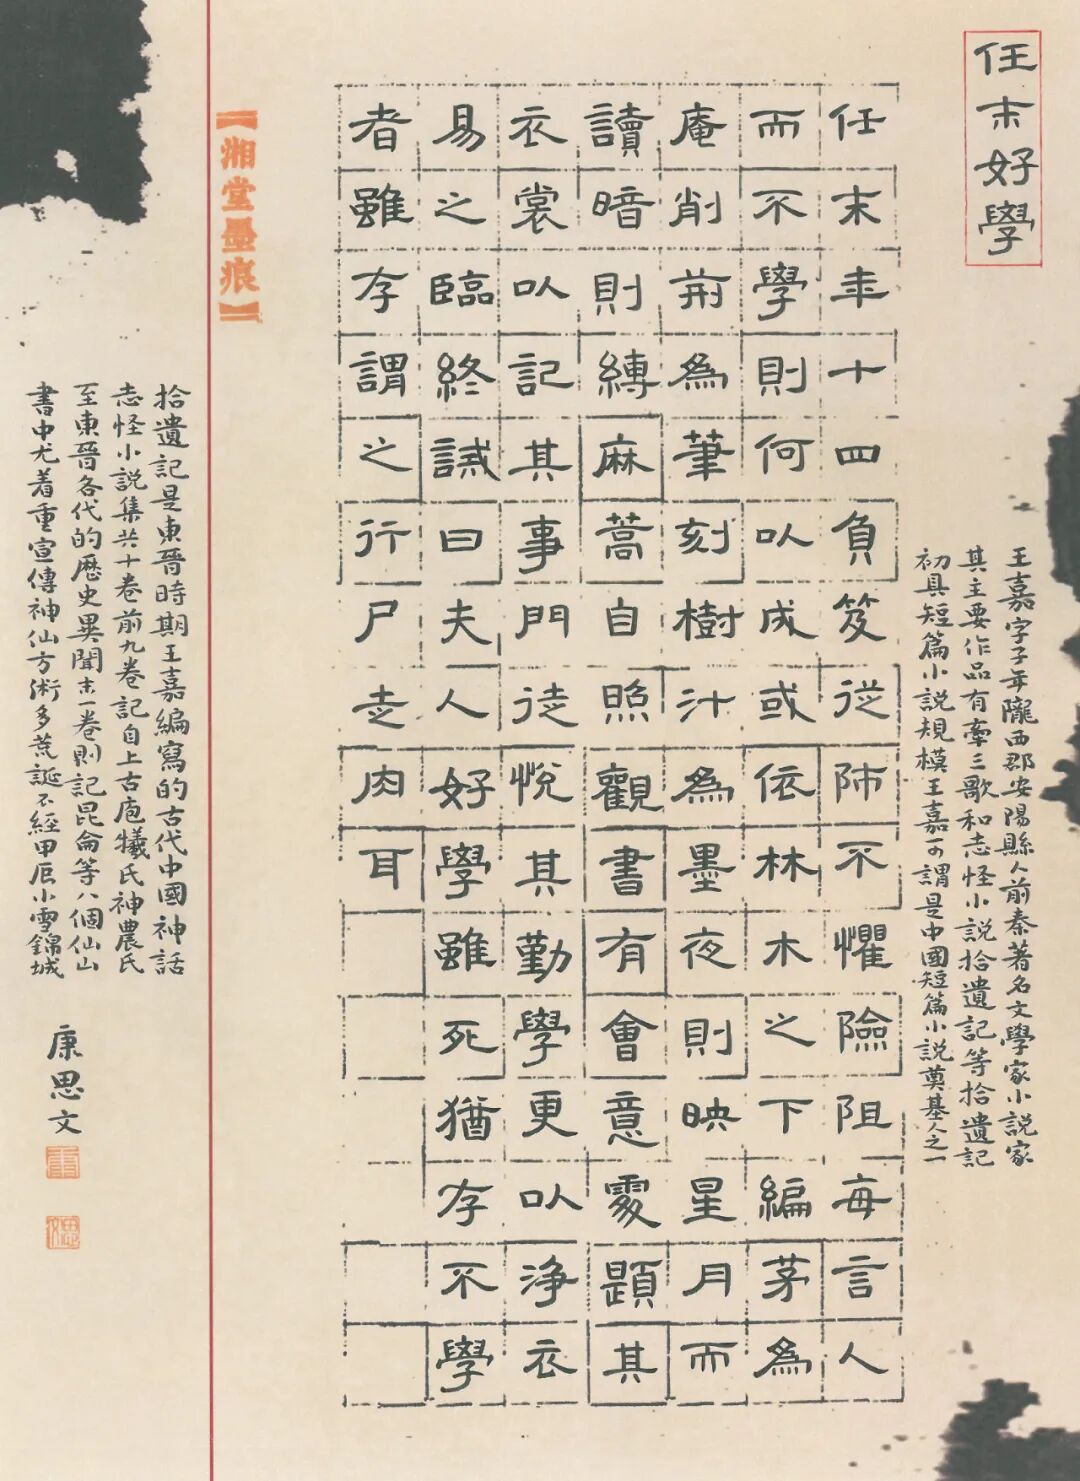 任末好學
王嘉字子年隴西郡安陽縣人前秦著名文學家小説家
其主要作品有牽三歌和志怪小説拾遺記等拾遺記
初具短篇小説規模王嘉可謂是中國短篇小説奠基人之一
任末年十四負笈從師不懼險阻每言人
而不學則何以成或依林木之下編茅為
庵削荊為筆刻樹汁為墨夜則映星月而
讀暗則縛麻蒿自照觀書有會意處題其
衣裳以記其事門徒悅其勤學更以淨衣
易之臨終誡曰夫人好學雖死猶存不學
者雖存謂之行尸走肉耳
【湘堂墨痕】
拾遺記是東晉時期王嘉編寫的古代中國神話
志怪小説集共十卷前九卷記自上古庖犧氏神農氏
至東晉各代的歷史異聞末一卷則記昆侖等八個仙山
書中尤着重宣傳神仙方術多荒誕不經甲辰小雪錦城
康思文